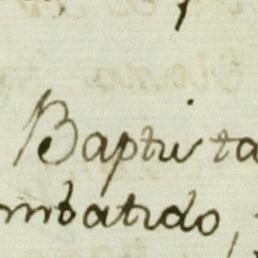 Baptista
mbatido,